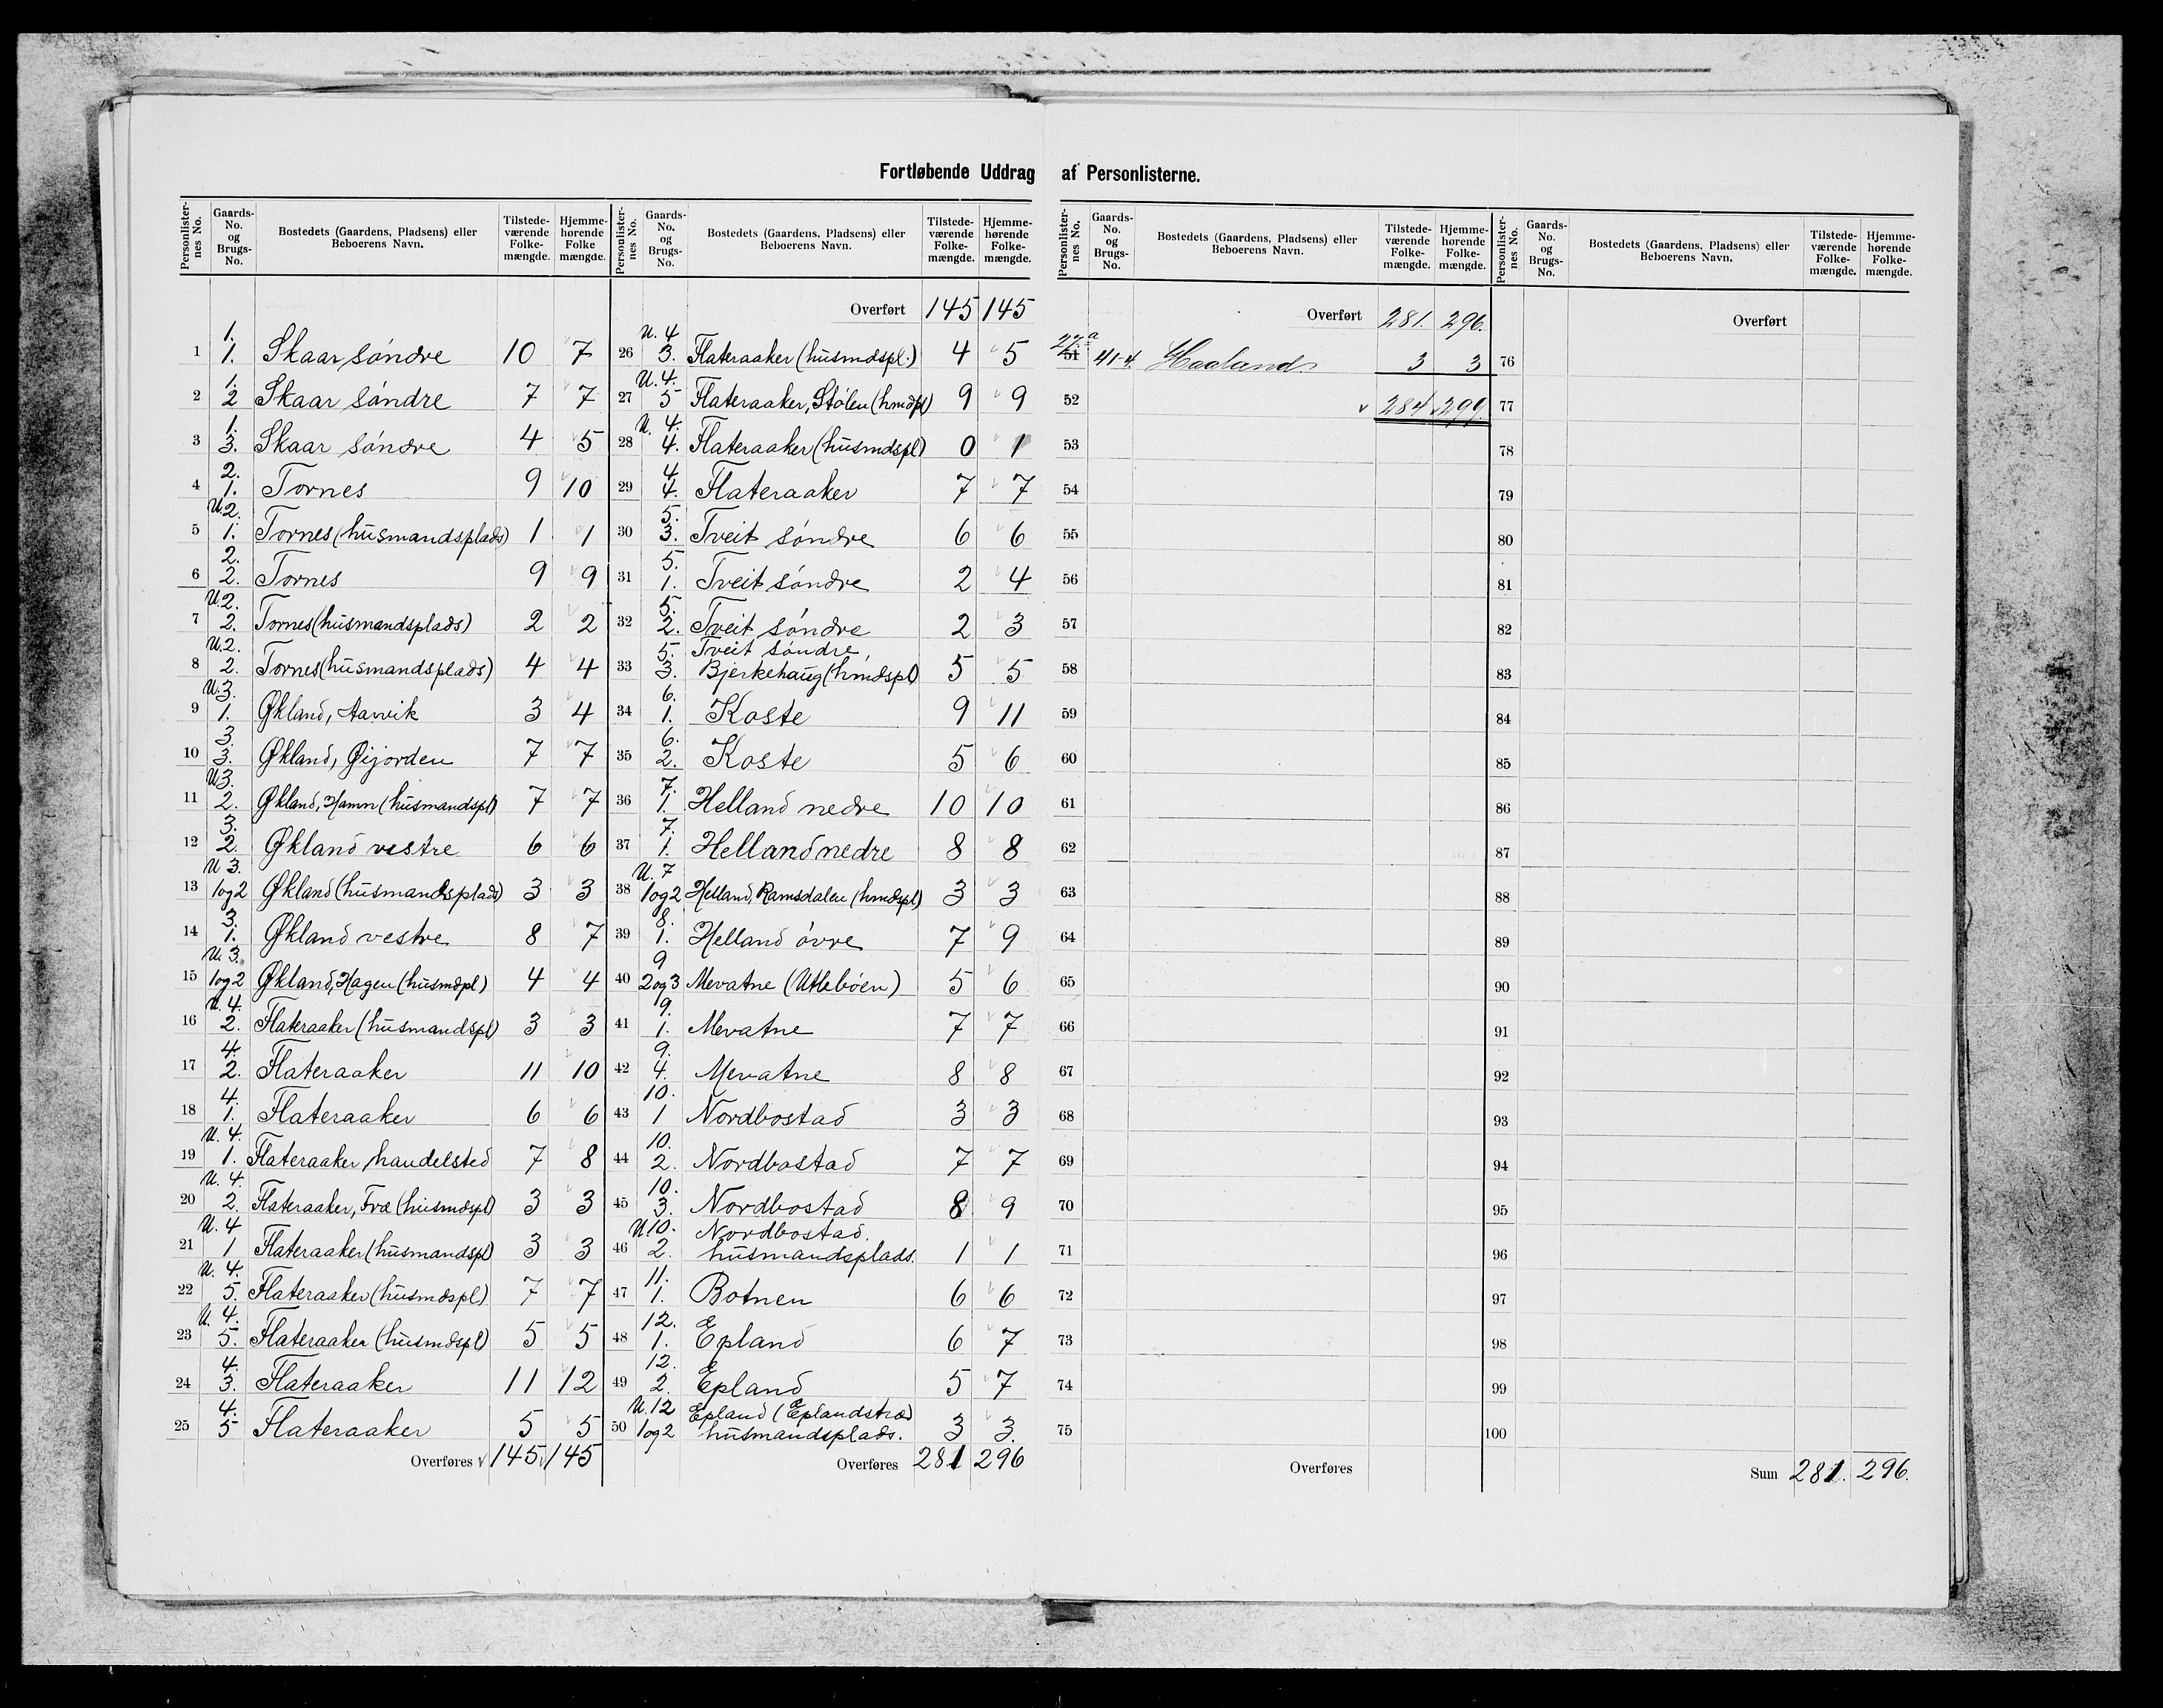 Fortløbende Uddrag af Personlisterne.
Personlisternes No. Gaards-No. og Brugs-No. Bostedets (Gaardens, Pladsens) eller Beboerens Navn. Tilstedeværende Folkemængde. Hjemmehørende Folke mængde.
1 1. 1. Skaar söndre 10 7
2 1. 2 Skaar söndre 7 7
3 1. 3. Skaar söndre 4 5
4 2. 1. Tornes 9 10
5 U.2. 1. Tornes (husmandsplads) 1 1
6 2. 2. Tornes 9 9
7 U.2. 2. Tornes (husmandsplads) 2 2
8 U.2. 2. Tornes (husmandsplads) 4 4
9 U.3. 1. Økland, Aarvik 3 4
10 3. 3. Økland, Øijorden 7 7
11 U.3. 2. Økland, Hamn (husmandspl) 7 7
12 3. 2. Økland vestre 6 6
13 U 3. 1og2 Økland (husmandsplads) 3 3
14 3. 1. Økland vestre 8 7
15 U. 3. 1og2 Økland, Hagen (husmdpl) 4 4
16 U. 4. 2. Flateraaker (husmandspl) 3 3
17 4. 2. Flateraaker 11 10
18 4. 1. Flateraaker 6 6
19 U. 4. 1. Flateraaker, handelsted 7 8
20 U. 4. 2. Flateraaker, Træ (husmdspl) 3 3
21 U. 4 1 Flateraaker (husmandspl) 3 3
22 U. 4. 5. Flateraaker (husmdspl) 7 7
23 U. 4. 5. Flateraaker (husmdspl) 5 5
24 4. 3. Flateraaker 11 12
25 4. 5 Flateraaker 5 5
Overføres 145 145
Personlisternes No. Gaards-No. og Brugs-No. Bostedets (Gaardens, Pladsens) eller Beboerens Navn. Tilstedeværende Folkemængde. Hjemmehørende Folkemængde.
Overført 145 145
26 U. 4 3. Flateraaker (husmdspl.) 4 5
27 U. 4. 5 Flateraaker, Stølen (hmdpl) 9 9
28 U. 4. 4. Flateraaker (husmdspl) 0 1
29 4. 4. Flateraaker 7 7
30 5. 3. Tveit söndre 6 6
31 5. 1. Tveit söndre 2 4
32 5. 2. Tveit söndre 2 3
33 5. 3. Tveit söndre,
Bjerkehaug (hmdspl) 5 5
34 6. 1. Koste 9 11
35 6. 2. Koste 5 6
36 7. 1. Helland nedre 10 10
37 7. 1. Helland nedre 8 8
38 U. 7 1og2 Helland, Ramsdalen (hmdspl) 3 3
39 8. 1. Helland övre 7 9
40 9 2og3 Mevatne (Utlebøen) 5 6
41 9. 1. Mevatne 7 7
42 9. 4. Mevatne 8 8
43 10. 1 Nordbostad 3 3
44 10. 2. Nordbostad 7 7
45 10. 3. Nordbostad 8 9
46 U.10. 2. Nordbostad.
husmandsplads. 1 1
47 11. 1. Botnen 6 6
48 12. 1. Epland 6 7
49 12. 2. Epland 5 7
50 U.12 1og2 Epland (Eplandstræ)
husmandsplads. 3 3.
Overføres 281 296
Personlisternes No. Gaards-No. og Brugs-No. Bostedets (Gaardens, Pladsens) eller Beboerens Navn. Tilstedeværende Folkemængde. Hjemmehørende Folkemængde.
Overført 281. 296.
51 27.a 41-4. Haaland 3 3
52 284 299.
53
54
55
56
57
58
59
60
61
62
63
64
65
66
67
68
69
70
71
72
73
74
75
Overføres
Personlisternes No. Gaards-No. og Brugs-No. Bostedets (Gaardens, Pladsens) eller Beboerens Navn. Tilstedeværende Folkemængde. Hjemmehørende Folkemængde.
Overført
76
77
78
79
80
81
82
83
84
85
86
87
88
89
90
91
92
93
94
95
96
97
98
99
100
Sum 281. 296.